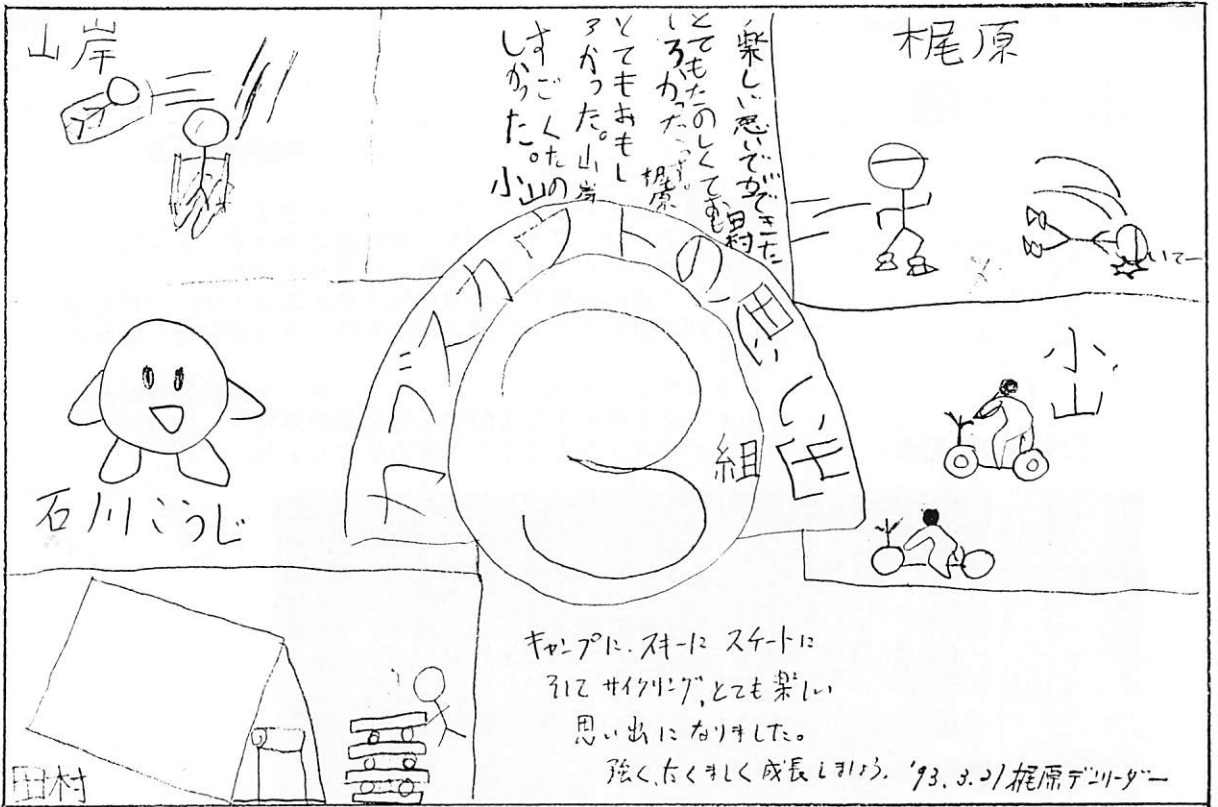 山岸
楽しい思いでができた
田村
とてもたのしくておも
しろかったです。
梶原
とてもおもし
ろかった。山岸
すごくたの
しかった。小山
梶原
いてー
カウトの思い出
3
組
小山
石川こうじ
キャンプに、スキーに スケートに
そして サイクリング、とても楽しい
思い出になりました。
強く、たくましく成長しましょう。'93.3.21梶原デンリーダー
田村